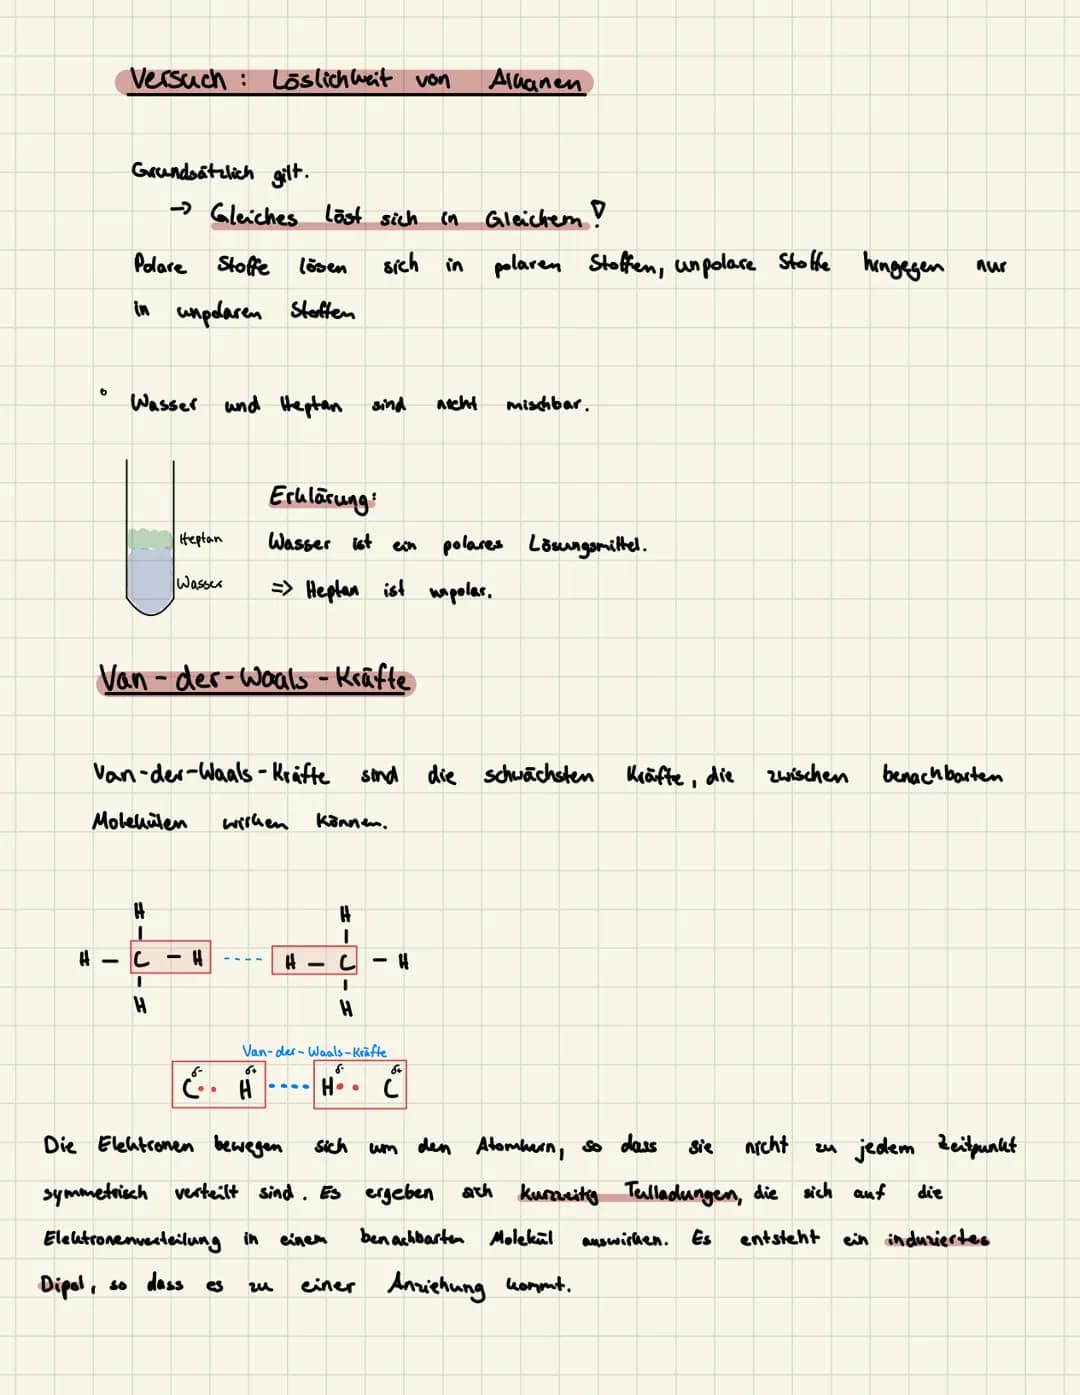 Versuch: Löslichkeit von Alkanen
Grundsätzlich gilt.
→ Gleiches löst sich in Gleichem!
Polare Stoffe lösen sich in polaren Stoffen, unpolare Stoffe hingegen nur
in unpolaren Stoffen
° Wasser und Heptan sind nicht mischbar.
Erklärung:
Heptan
Wasser ist ein polares Lösungsmittel.
Wasser
=> Heptan ist unpolar.
Van-der-Waals-Kräfte
Van-der-Waals-Kräfte sind die schwächsten Kräfte, die zwischen benachbarten
Molekülen wirken können.
H H
H – C – H ---- H – C – H
H H
Van-der-Waals-Kräfte
δ- δ+ δ- δ+
C·· H ---- H·· C
Die Elektronen bewegen sich um den Atomkern, so dass sie nicht zu jedem Zeitpunkt
symmetrisch verteilt sind. Es ergeben sich kurzzeitig Teilladungen, die sich auf die
Elektronenverteilung in einem benachbarten Molekül auswirken. Es entsteht ein induziertes
Dipol, so dass es zu einer Anziehung kommt.